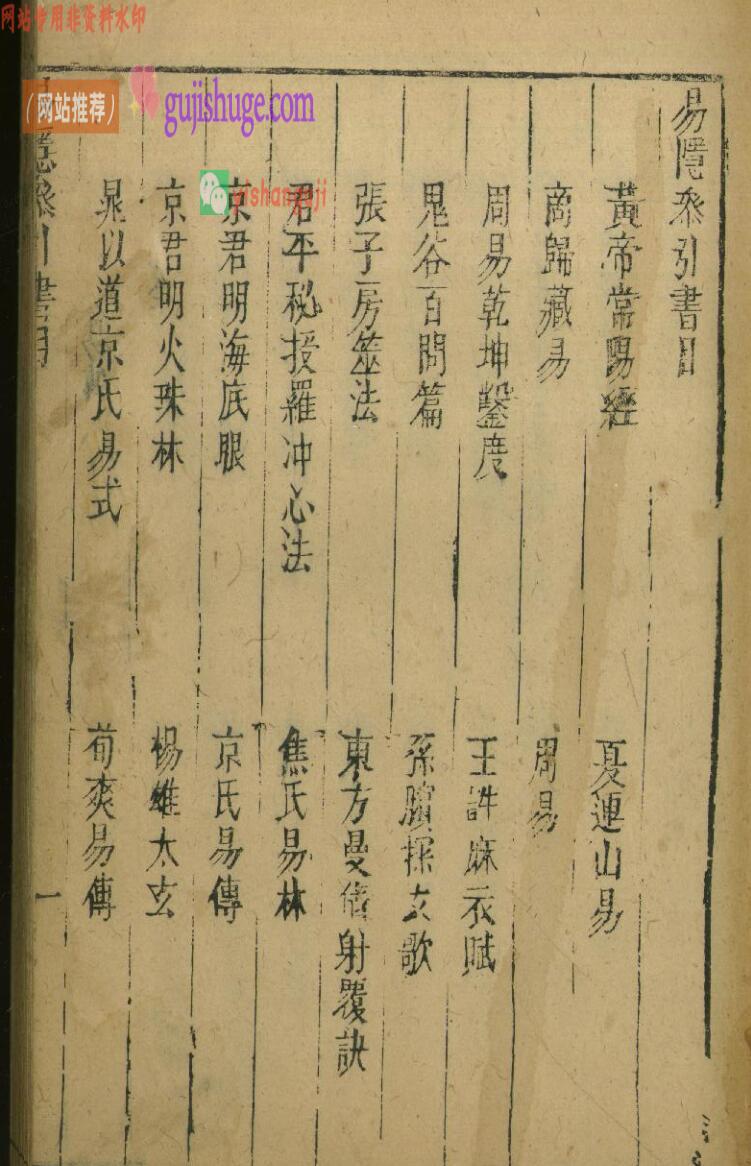 网站专用非资料水印
（网站推荐）
gujishuge.com
易隱叅引書目
黃帝常陽經
夏連山易
商歸藏易
周易
周易乾坤鑿度
王詡麻衣賦
鬼谷百問篇
孫臏探玄歌
張子房筮法
東方曼倩射覆訣
君平秘授羅冲心法
焦氏易林
京君明海底眼
京氏易傳
京君明火珠林
楊雄太玄
晁以道京氏易式
荀爽易傳
隱叅引書目
一